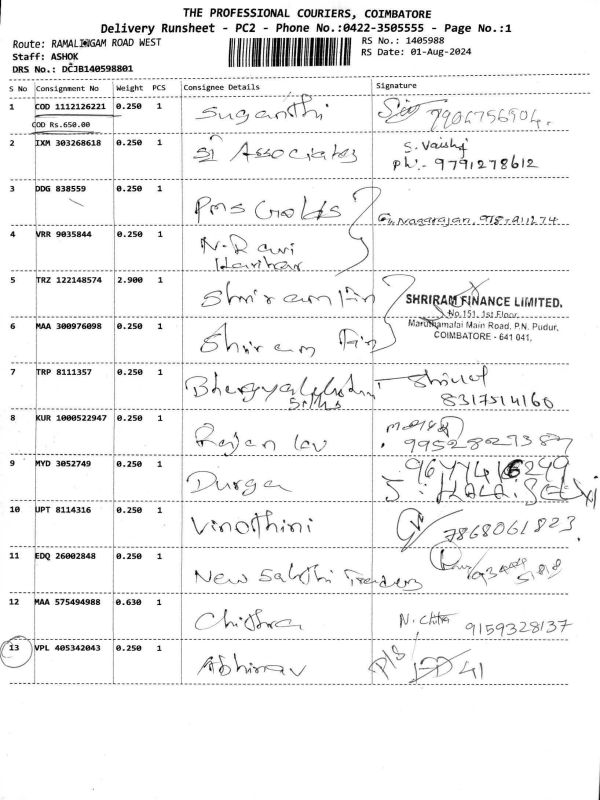 THE PROFESSIONAL COURIERS, COIMBATORE
Delivery Runsheet - PC2 - Phone No.:0422-3505555 - Page No.:1
Route: RAMALINGAM ROAD WEST
RS No.: 1405988
Staff: ASHOK
RS Date: 01-Aug-2024
DRS No.: DCJB140598801
S No Consignment No Weight PCS Consignee Details Signature
1 COD 1112126221 0.250 1 Suganthi 7904756904.
COD Rs.650.00
2 IXM 303268618 0.250 1 Sri Associates S. Vaishj
Ph:- 9791278612
3 DDG 838559 0.250 1 Pms Golds
4 VRR 9035844 0.250 1 N.Ravi
Harihar
5 TRZ 122148574 2.900 1 Shriram Fin SHRIRAM FINANCE LIMITED.
No.151, 1st Floor,
Maruthamalai Main Road, P.N. Pudur,
COIMBATORE - 641 041.
6 MAA 300976098 0.250 1 Shriram Fin
7 TRP 8111357 0.250 1
Silks 8317514160
8 KUR 1000522947 0.250 1 Rajan
9 MYD 3052749 0.250 1 Durga
10 UPT 8114316 0.250 1 Vinothini 7868061823.
11 EDQ 26002848 0.250 1 New Sakthi Traders
12 MAA 575494988 0.630 1 Chithra N. Chitra 9159328137
13 VPL 405342043 0.250 1 Abhinav